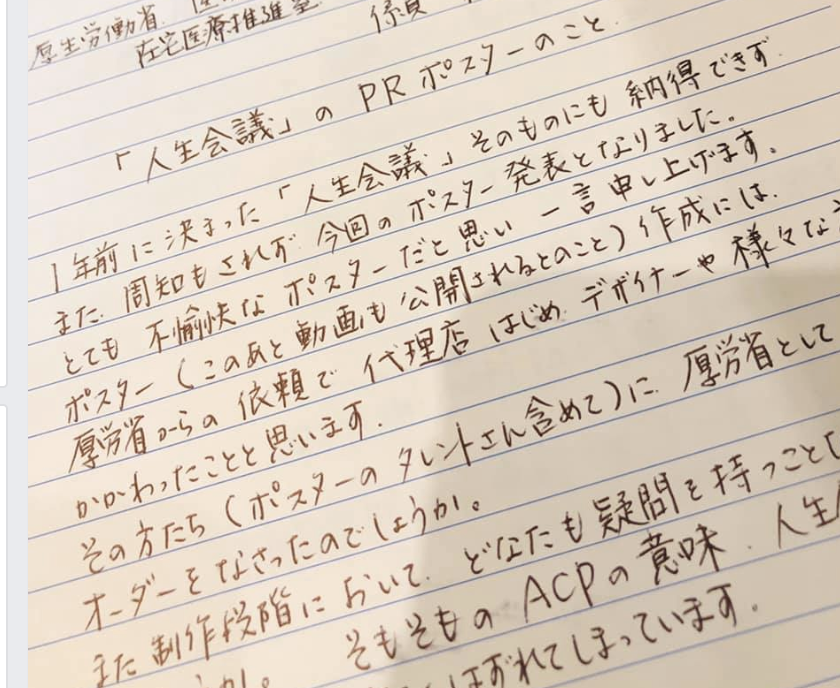 厚生労働省
在宅医療推進室 係員
「人生会議」の PR ポスターのこと.
1年前に決まった「人生会議」そのものにも 納得できず
また 周知もされず 今回の ポスター 発表となりました。
とても 不愉快な ポスターだと思い 一言申し上げます。
ポスター (このあと動画も公開されるとのこと) 作成には.
厚労省からの依頼で 代理店 はじめ デザイナーや 様々な
かかわったことと思います.
その方たち (ポスターの タレントさん含めて) に 厚労省として
オーダーをなさったのでしょうか。
また 制作段階において どなたも疑問を持つこと
そもそもの ACPの意味. 人生
はずれてしまっています.